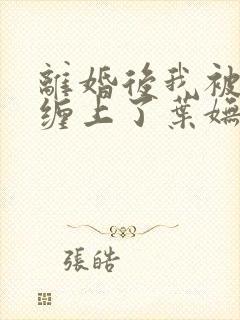 離婚後我被
纏上了葉嫵
張皓